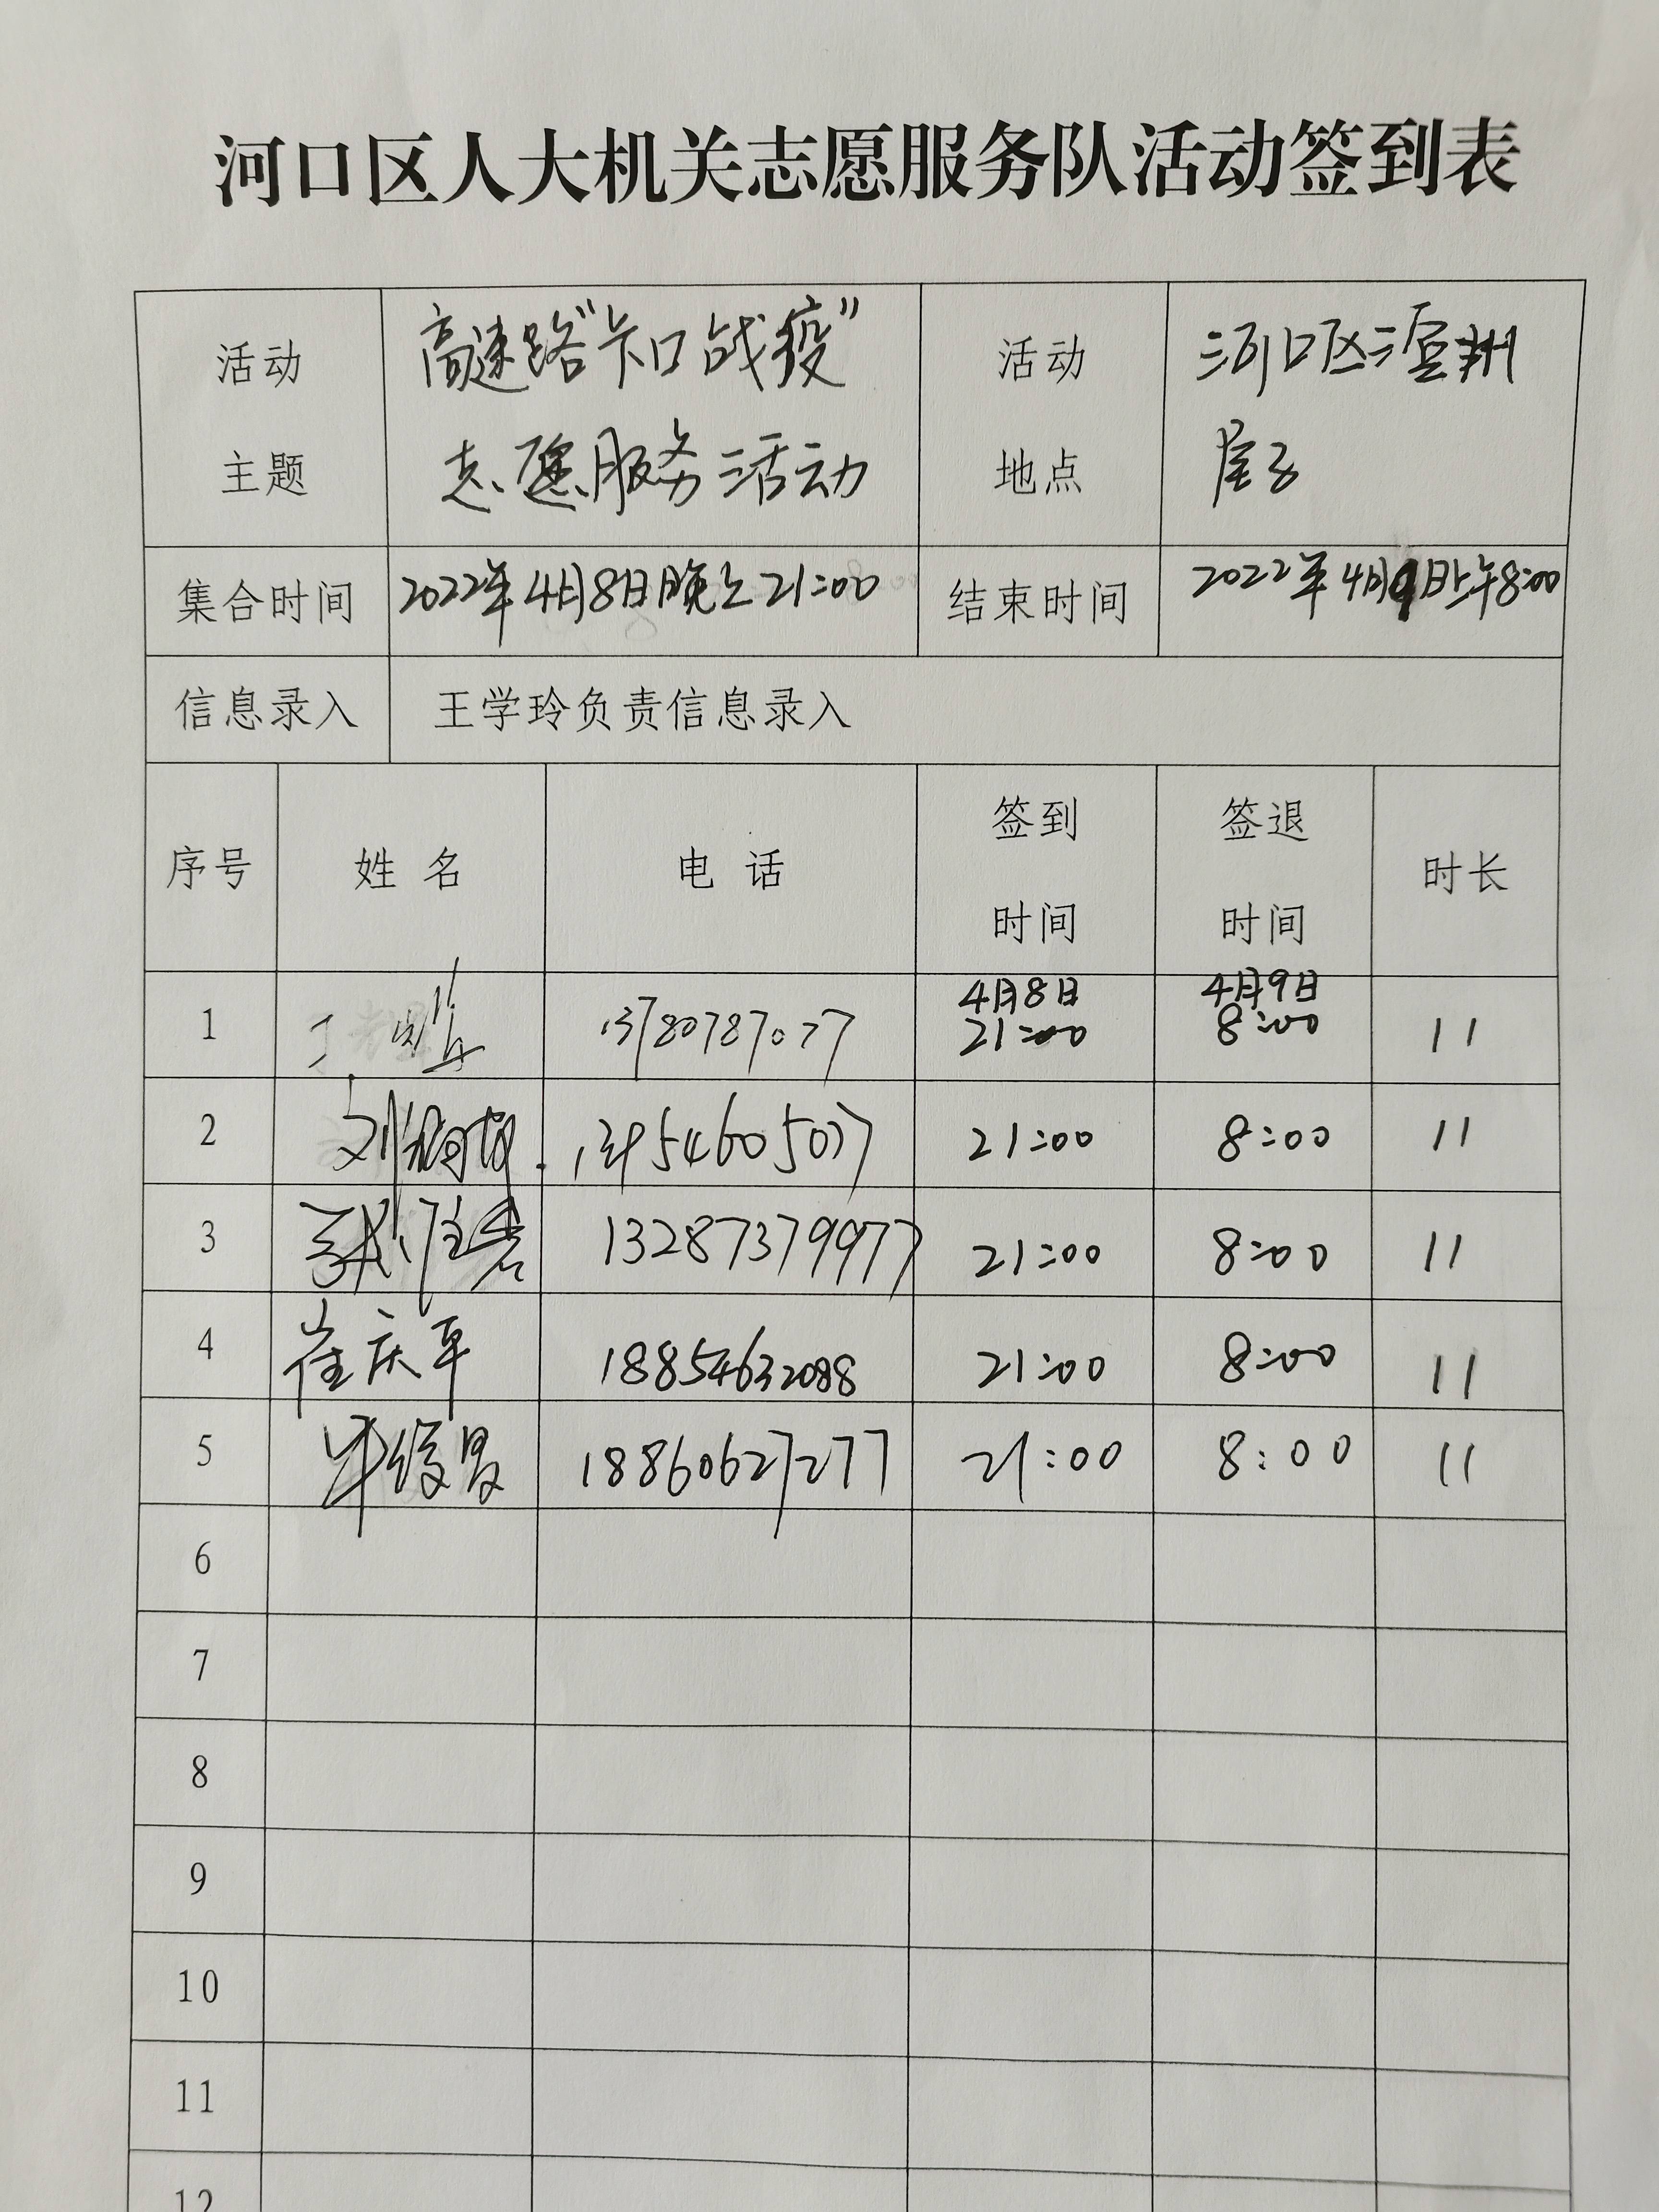 河口区人大机关志愿服务队活动签到表
活动主题
高速路“卡口战疫”
志愿服务活动
活动地点
河口区
集合时间
2022年4月8日晚上21:00
结束时间
2022年4月9日上午8:00
信息录入
王学玲负责信息录入
序号 姓名 电话 签到时间 签退时间 时长
1 丁 13780787077 4月8日 21:00 4月9日 8:00 11
2 刘 21:00 8:00 11
3 13287379977 21:00 8:00 11
4 崔庆军 18854632088 21:00 8:00 11
5 18860627277 21:00 8:00 11
6
7
8
9
10
11
12